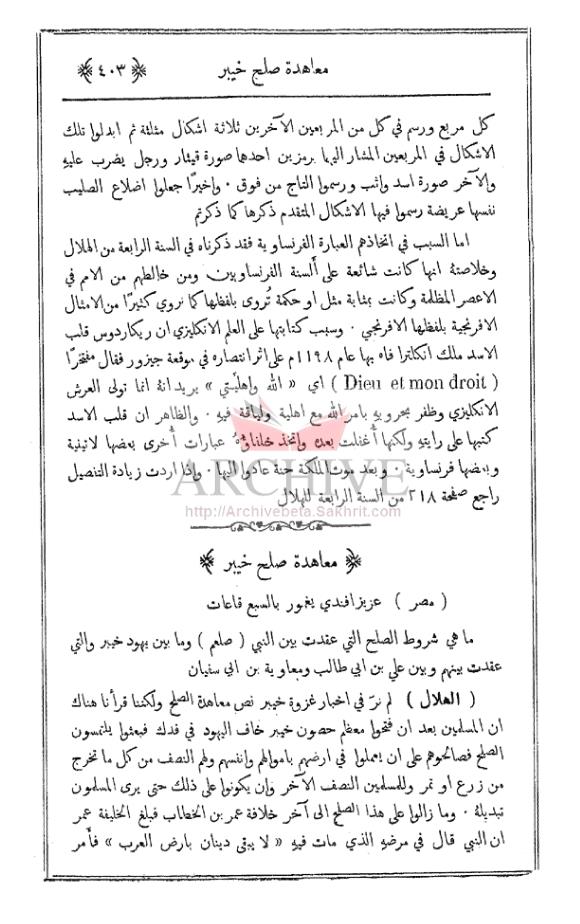 معاهدة صلح خيبر ﴿ ٤٠٣ ﴾
كل مربع ورسم في كل من المربعين الآخرين ثلاثة اشكال مثلثة ثم ابدلوا تلك
الاشكال في المربعين المشار اليها برمزين احدها صورة قيثار ورجل يضرب عليهِ
والآخر صورة اسد واثب ورسموا التاج من فوق · واخيرًا جعلوا اضلاع الصليب
نفسها عريضة رسموا فيها الاشكال المتقدم ذكرها كما ذكرتم
اما السبب في اتخاذهم العبارة الفرنساوية فقد ذكرناه في السنة الرابعة من الهلال
وخلاصتهُ انها كانت شائعة على ألسنة الفرنساويين ومن خالطهم من الامم في
الاعصر المظلمة وكانت بمثابة مثل او حكمة تُروى بلفظها كما نروي كثيرًا من الامثال
الافرنجية بلفظها الافرنجي · وسبب كتابتها على العلم الانكليزي ان ريكاردوس قلب
الاسد ملك انكلترا فاه بها عام ١١٩٨م على اثر انتصاره في موقعة جيزور فقال مفتخرًا
( Dieu et mon droit ) اي « الله واهليتي » يريد انهُ انما تولى العرش
الانكليزي وظفر بحروبهِ بامر الله مع اهلية ولياقة فيهِ · والظاهر ان قلب الاسد
كتبها على رايتهِ ولكنها أُغفلت بعده واتخذ خلفاؤهُ عبارات أُخرى بعضها لاتينية
وبعضها فرنساوية · وبعد موت الملكة حنة عادوا اليها · واذا اردت زيادة التفصيل
راجع صفحة ٢١٨ من السنة الرابعة للهلال
ARCHIVE
http://Archivebeta.Sakhrit.com
﴿ معاهدة صلح خيبر ﴾
( مصر ) عزيز افندي يغمور بالسبع قاعات
ما هي شروط الصلح التي عقدت بين النبي ( صلعم ) وما بين يهود خيبر والتي
عقدت بينهم وبين علي بن ابي طالب ومعاوية بن ابي سفيان
( الهلال ) لم نرَ في اخبار غزوة خيبر نص معاهدة الصلح ولكننا قرأنا هناك
ان المسلمين بعد ان فتحوا معظم حصون خيبر خاف اليهود في فدك فبعثوا يلتمسون
الصلح فصالحوهم على ان يعملوا في ارضهم باموالهم وانفسهم ولهم النصف من كل ما تخرج
من زرع او تمر وللمسلمين النصف الآخر وان يكونوا على ذلك حتى يرى المسلمون
تبديلهُ · وما زالوا على هذا الصلح الى آخر خلافة عمر بن الخطاب فبلغ الخليفة عمر
ان النبي قال في مرضهِ الذي مات فيهِ « لا يبقى دينان بارض العرب » فأمر